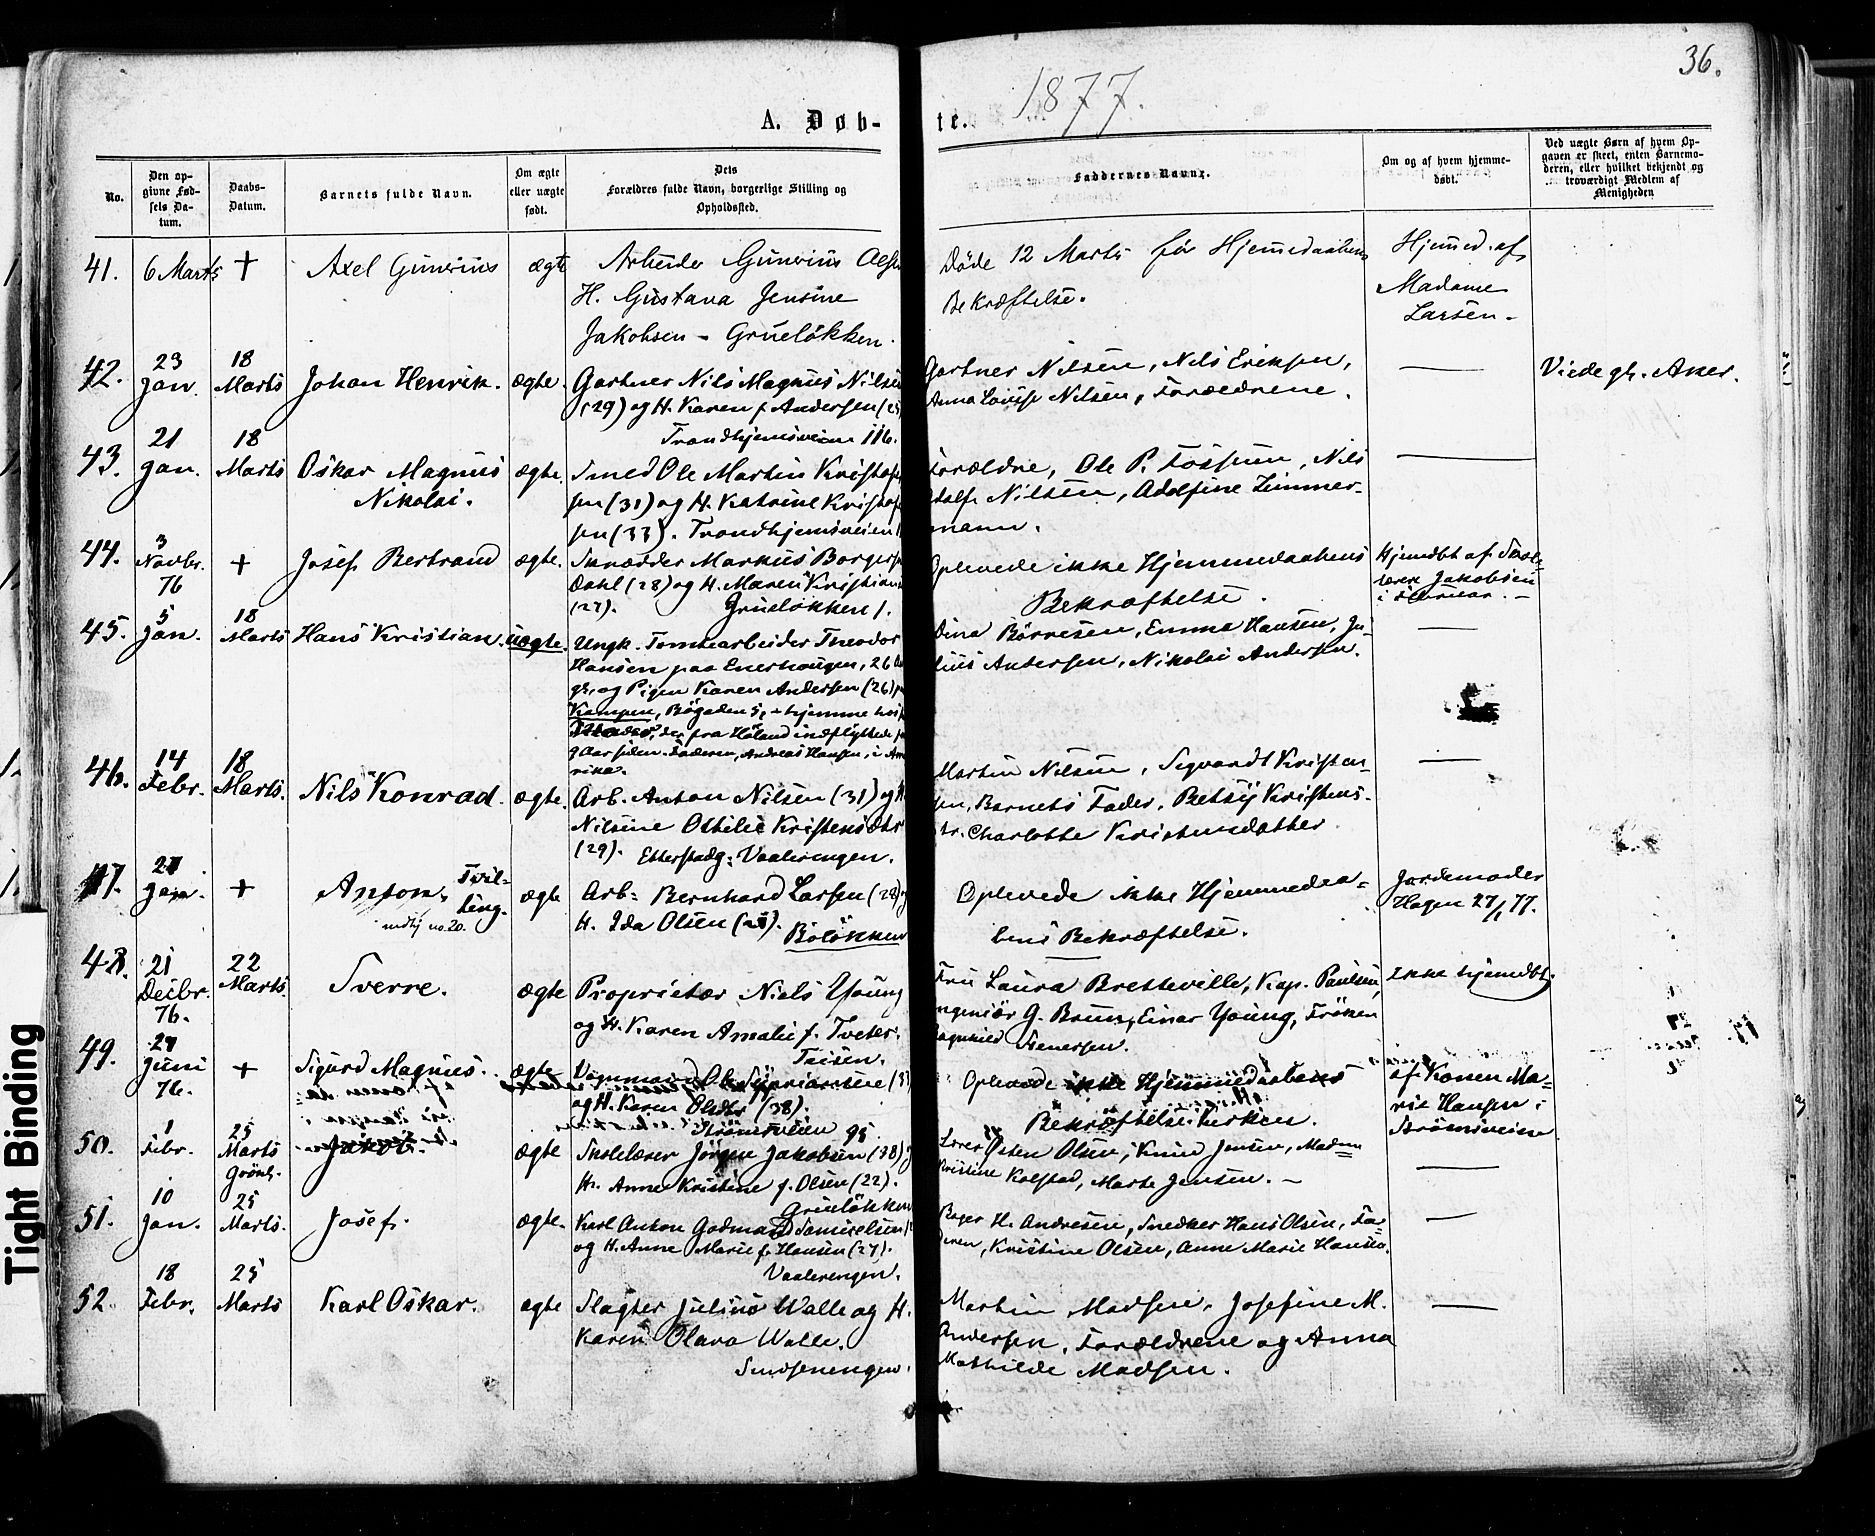 36.
1877.
A. Døb-
te.
No.
Den op-
givne Fød-
sels Da-
tum.
Daabs-
Datum.
Barnets fulde Navn.
Om ægte
eller uægte
født.
Dets
Forældres fulde Navn, borgerlige Stilling og
Opholdssted.
Faddernes Navne.
Om og af hvem hjemme-
døbt.
Ved uægte Børn af hvem Op-
gaven er skeet, enten Barnemo-
deren, eller hvilket bekjendt og
troværdigt Medlem af
Menigheden
41. 6 Marts + Axel Gunerius ægte Arbeider Gunerius
H. Gustava Jensine
Jakobsen - Grueløkken.
Døde 12 Marts før Hjemmedaabens
Bekræftelse.
Hjemmed. af
Madame
Larsen.
42. 23 Jan. 18 Marts Johan Henrik. ægte. Gartner Nils Magnus Nilsen
(29) og H. Karen f. Andersen
Trondhjemsveien 116.
Gartner Nilsen, Nils Eriksen,
Anna Lovise Nilsen, Forældrene.
Viede gr. Aker.
43. 21 Jan. 18 Marts Oskar Magnus
Nikolai.
ægte. Smed Ole Martin Kristof
sen (31) og H. Katrine Kristof
sen (33). Trondhjemsveien
Forældre, Ole P. Fossum, Nils
Adolf Nilsen, Adolfine Zimmer-
mann.
44. 3 Novbr. 76 + Josef Bertrand ægte. Skrædder Markus Borger
Dahl (28) og H. Maren Kristian
(27). Grueløkken 1.
Oplevede ikke Hjemmedaabens
Bekræftelse.
Hjemdbt af Skole-
lærer Jakobsen
45. 5 Jan. 18 Marts Hans Kristian. uægte. Ungk. Tomtearbeider Theodor
Hansen paa Enerhaugen, 26
gl. og Pigen Karen Andersen (26)
Kampen, Bøgaden 5, hjemme hos
der fra Høland indflyttede
9 Aar siden. Faderen, Andreas Hansen, i Am
rika.
Dina Børresen, Emma Hansen, Ju-
lius Andersen, Nikolai Andersen.
46. 14 Febr. 18 Marts. Nils Konrad. ægte. Arb. Anton Nilsen (31) og H.
Nilsine Othilie Kristensdtr
(29). Etterstadg: Vaalerengen.
Martin Nilsen, Sigvardt Kristen-
sen, Barnets Fader, Betsy Kristens-
dtr. Charlotte Kristensdatter.
47. 21 Jan. + Anton, Tvil-
ling.
indtj no. 20.
ægte Arb. Bernhard Larsen (28)
H. Ida Olsen. Bøløkken
Oplevede ikke Hjemmedaa-
bens Bekræftelse.
Jordemoder
Hagen 27/1 77.
48. 21 Decbr. 76. 22 Marts. Sverre. ægte Proprietær Niels Young
og H. Karen Amalie f. Tveter.
Teisen.
Fru Laura Bretteville, Kap. Paulsen,
Ingeniør G. Bruun, Einar Young, Frøken
Ragnhild Stenersen.
Ikke hjemdbt.
49. 27 Juni 76. + Sigurd Magnus. ægte Ole Sypriansen
og H. Karen Olsdtr (38).
Strømsveien 95
Oplevede ikke Hjemmedaabens
Bekræftelse i Kirken.
af Konen Ma-
rie Hansen i
Strømsveien
50. 1 Febr. 25 Marts
Grønl.
Jakob. ægte Skolelærer Jørgen Jakobsen (38)
H. Anne Kristine f. Olsen (22).
Grueløkken
Lærer Østen Olsen, Knud Jensen, Madam
Kristine Kolstad, Marte Jensen.
51. 10 Jan. 25 Marts. Josef. ægte. Karl Anton Godmand Samuelsen
og H. Anne Marie f. Hansen (27).
Vaalerengen.
Bager H. Andresen, Snedker Hans Olsen, Fa-
deren, Kristine Olsen, Anne Marie Hansen.
52. 18 Febr. 25 Marts Karl Oskar. ægte Slagter Julius Walle og H.
Karen Olava Walle.
Smedsenengen.
Martin Madsen, Josefine M.
Andersen, Forældrene og Anna
Mathilde Madsen.
Tight Binding